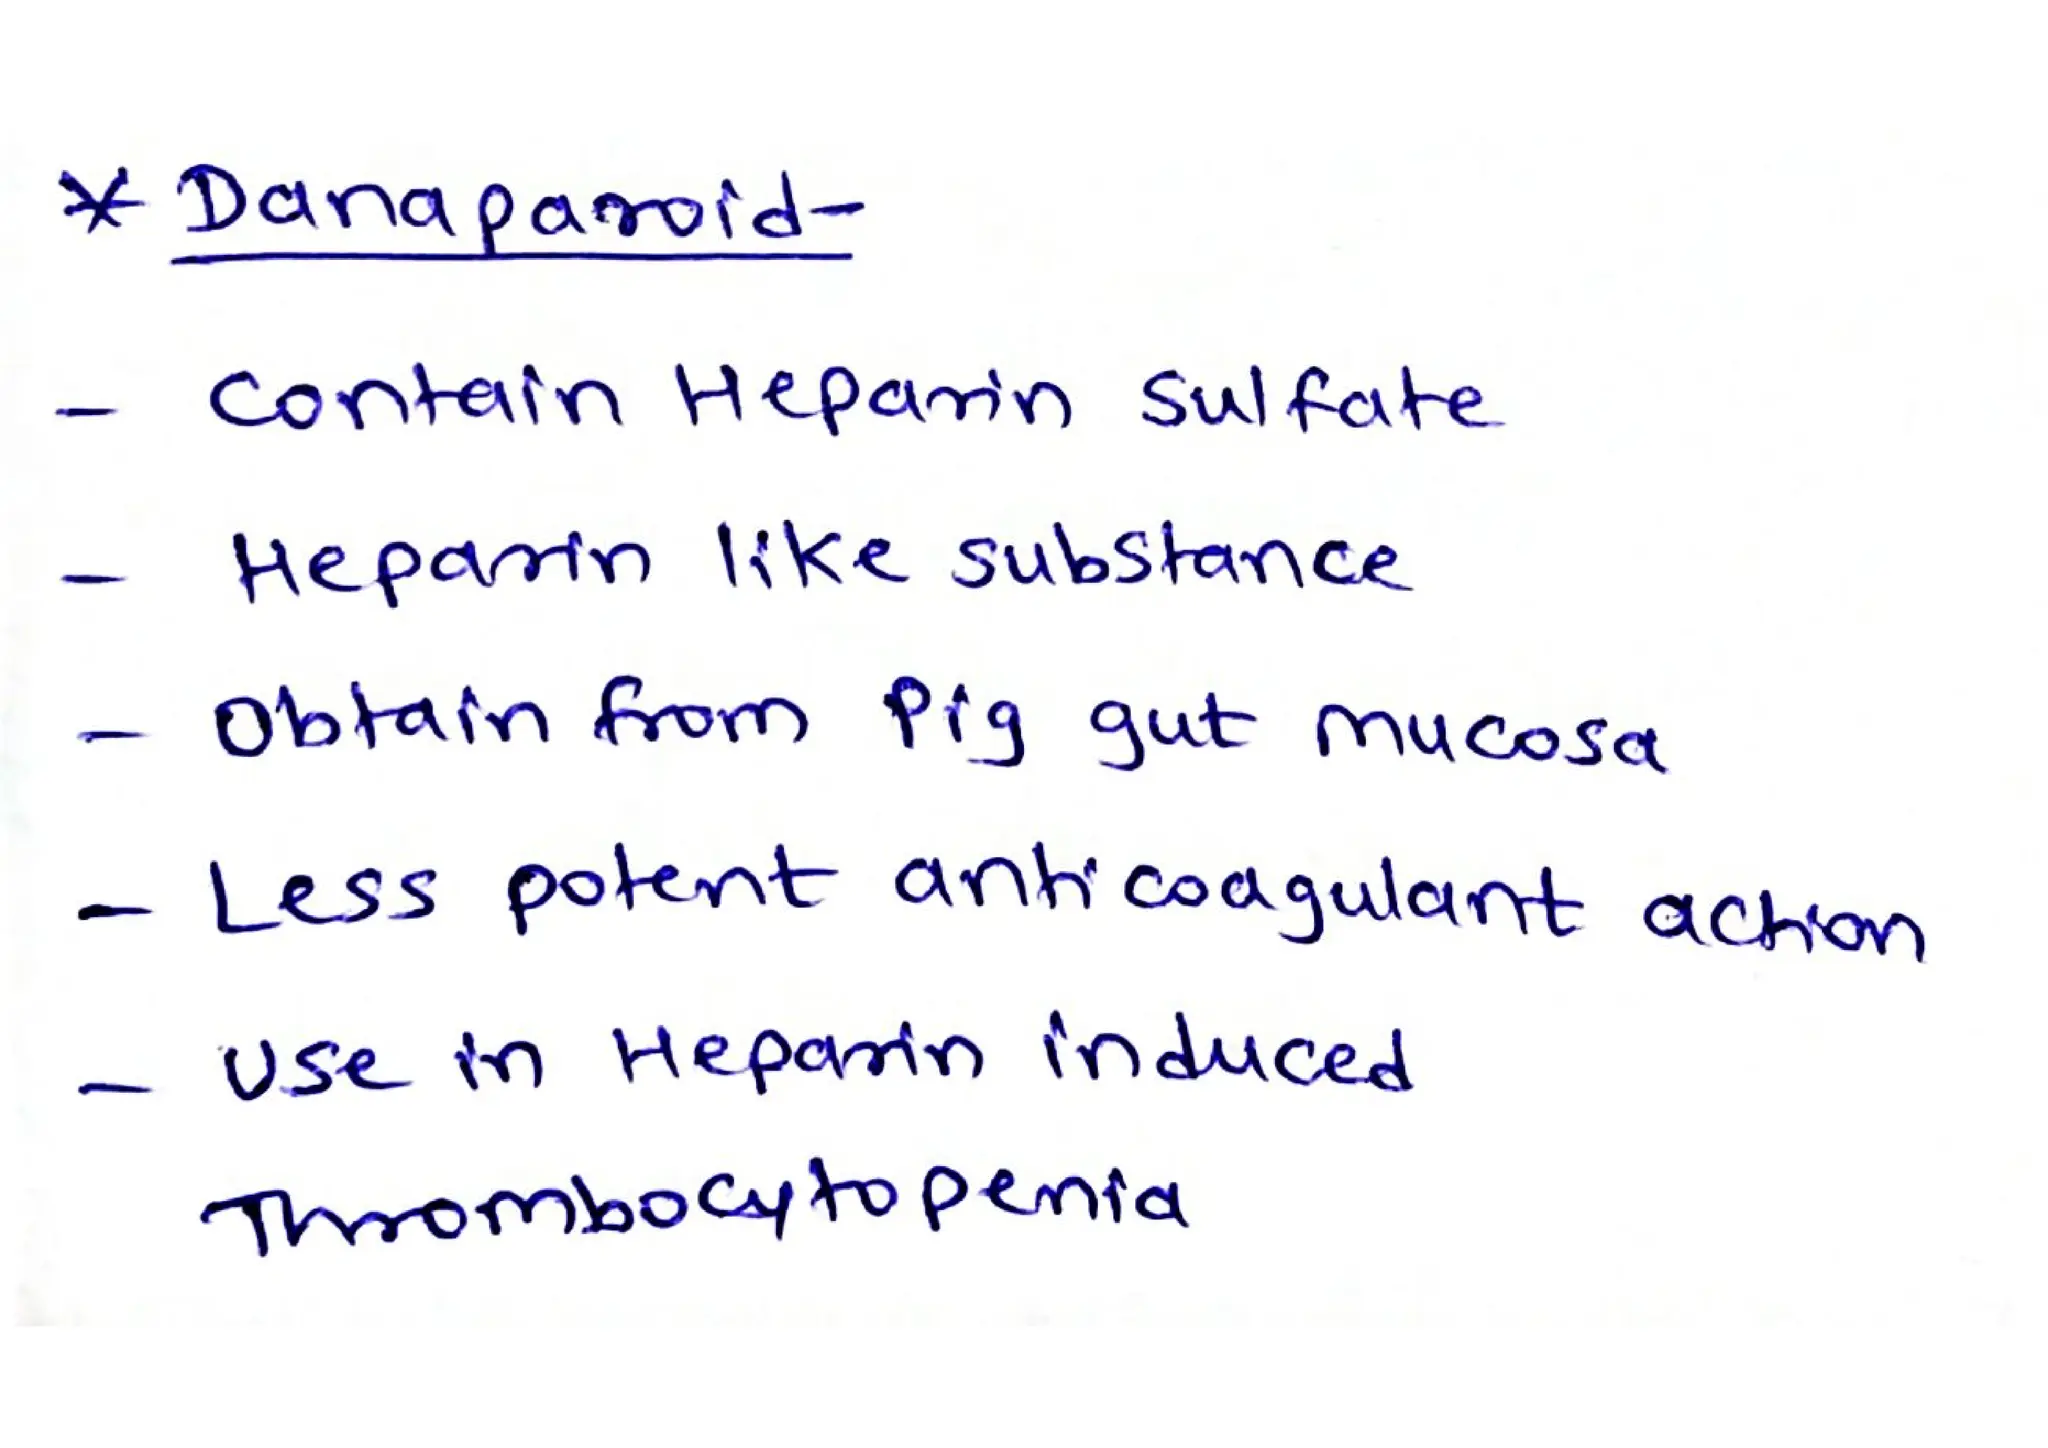 * Danaparoid-
- Contain Heparin sulfate
- Heparin like substance
- Obtain from Pig gut mucosa
- Less potent anticoagulant action
- Use in Heparin induced
Thrombocytopenia